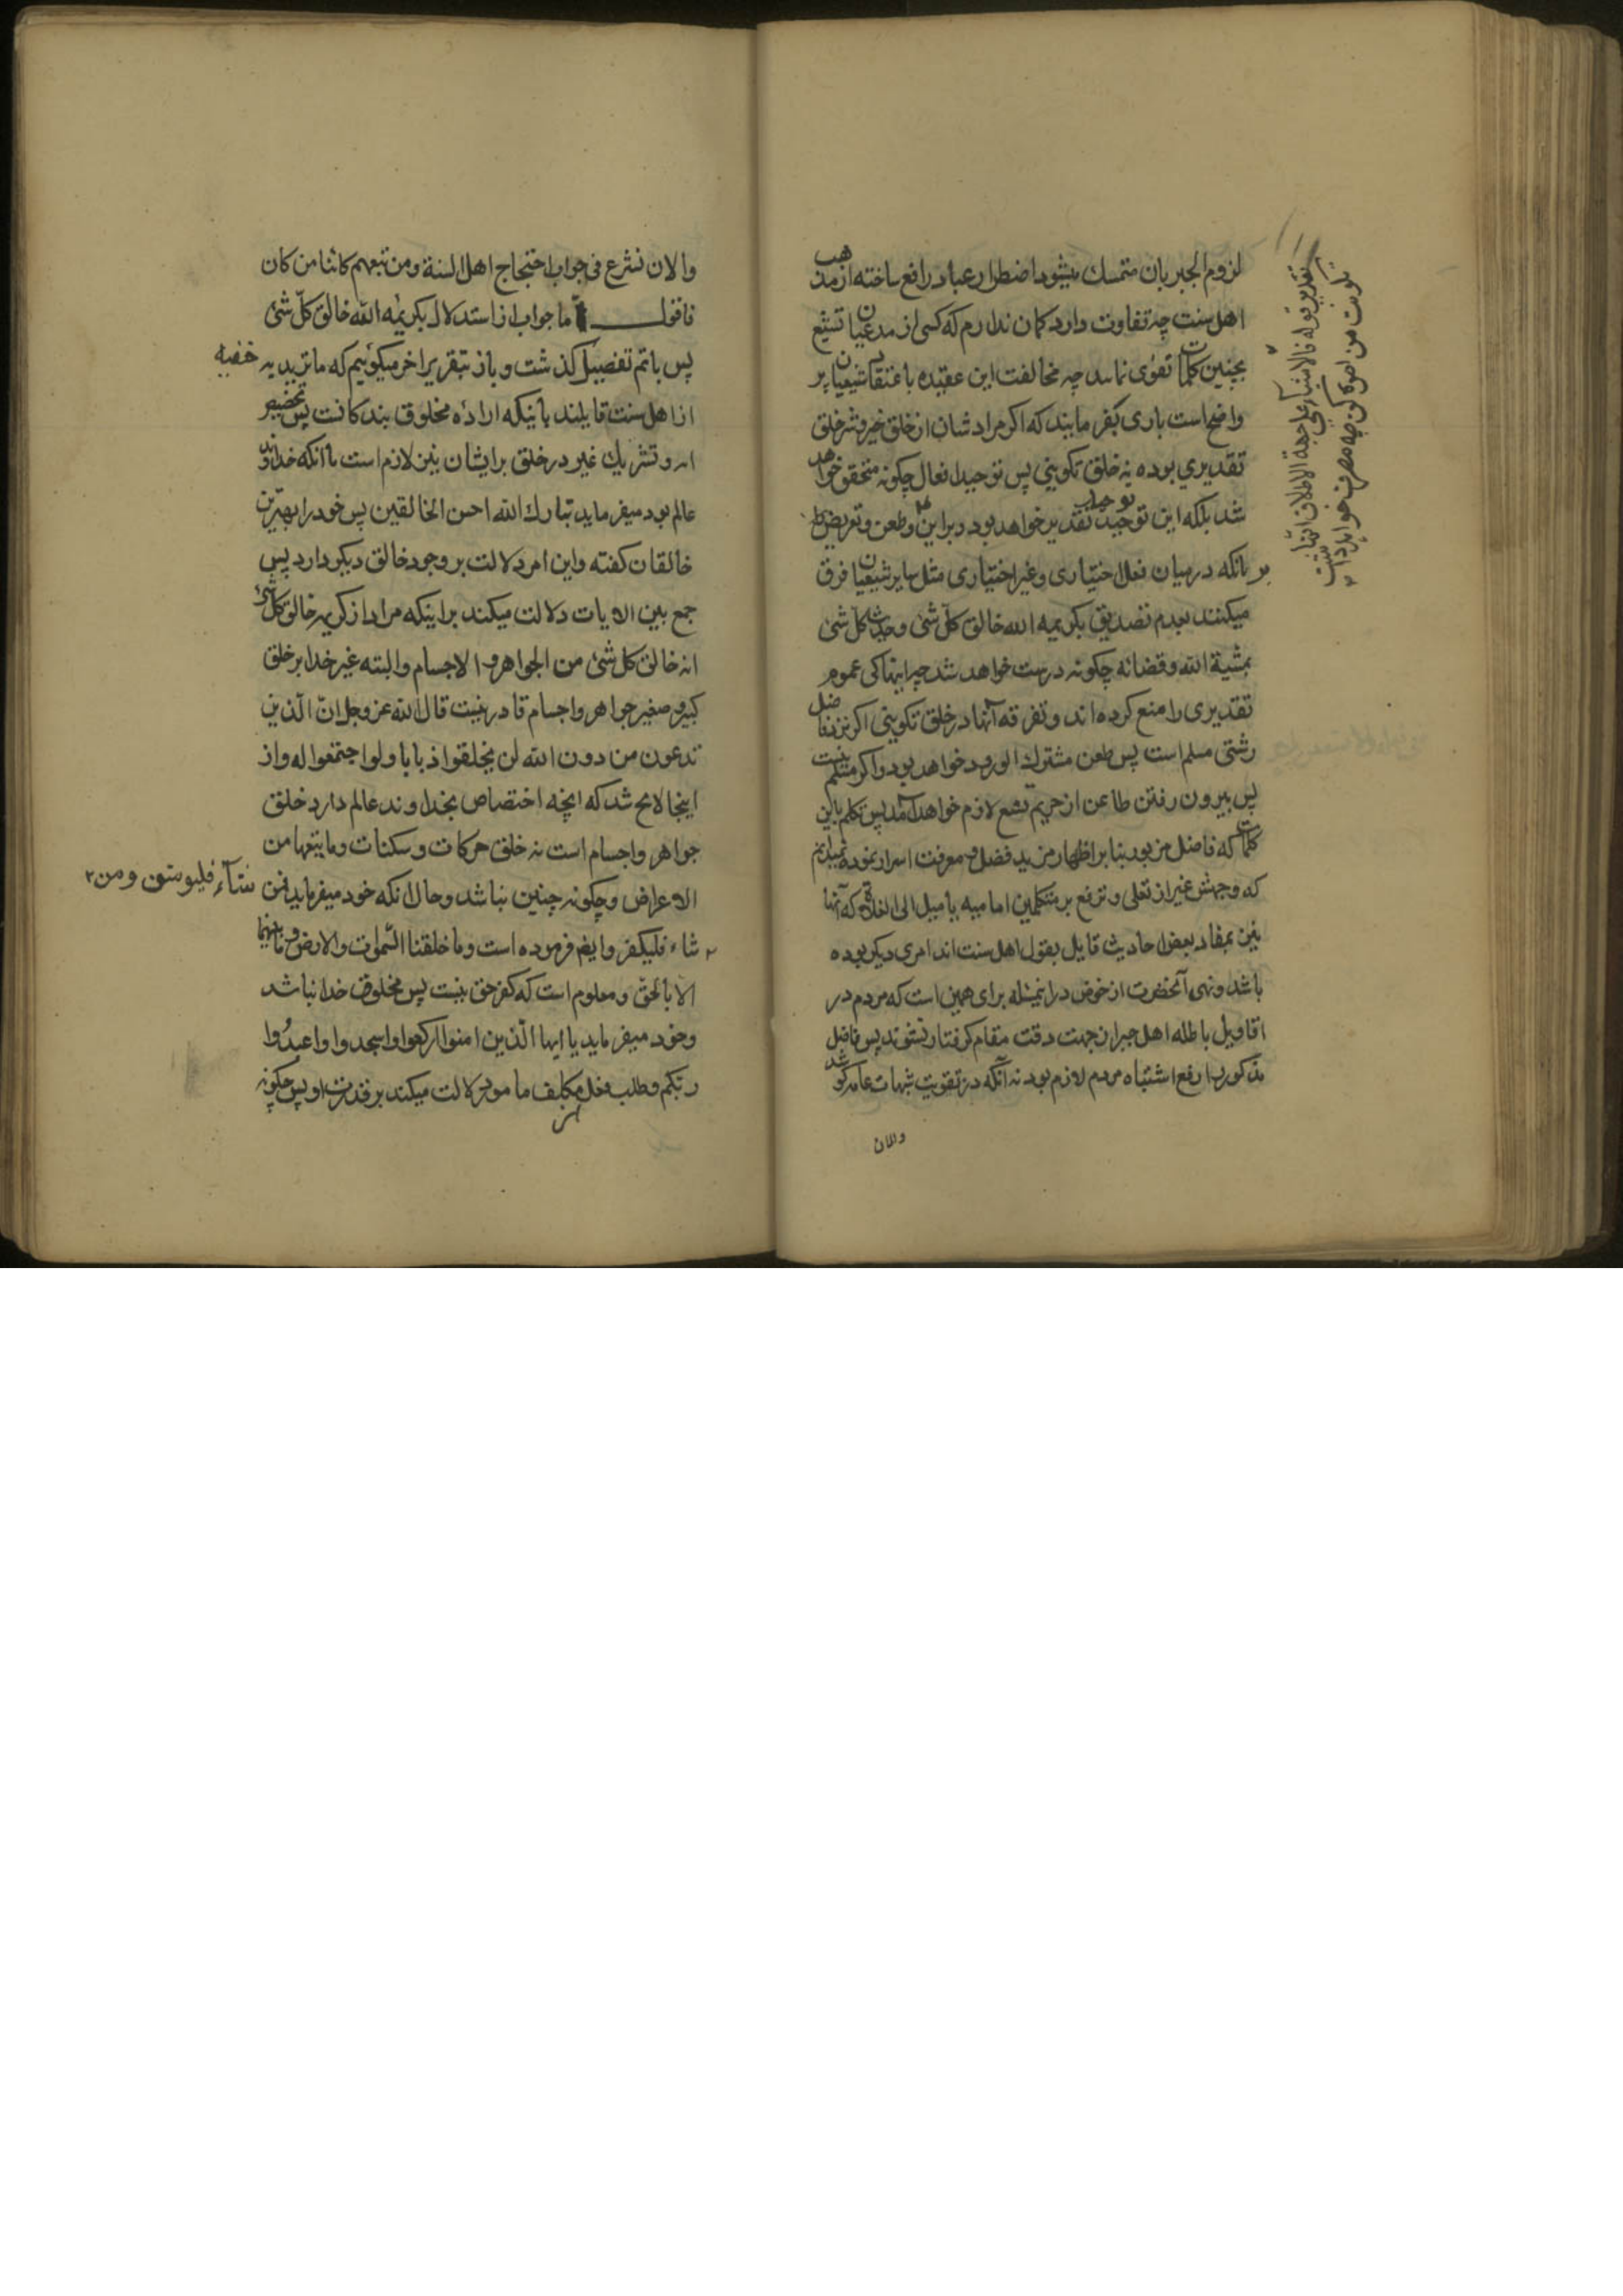 لزوم الجبر بان متمسك میشود اضطرار عباد را رفع ساخته از مذهب
اهل سنت چه تفاوت دارد کمان ندارم که کسی از مدعیان تشیع
بچنین کلمات تفوّی نماید چه مخالفت این عقیده با عتقاد شیعیان پر
واضح است باری بفرمایند که اکر مراد شان از خلق خیر و شر خلق
تقدیری بوده نه خلق تکوینی پس توحید افعال چکونه متحقق خواهد
شد بلکه این توحید تقدیر خواهد بود و براین طعن و تعریض
بر بانکه درمیان فعل اختیاری و غیر اختیاری مثل سایر شیعیان فرق
میکنند بعدم تصدیق بکریمه الله خالق کلّ شئ وحدیث کل شئ
بمشیة الله وقضائه چکونه درست خواهد شد چه اینها کی عموم
تقدیری را منع کرده اند و تفرقه آنها در خلق تکوینی اکر نزد فاضل
رشتی مسلم است پس طعن مشترك الورود خواهد بود و اکر مسلم نیست
پس بیرون رفتن طاعن از حریم تشیع لازم خواهد آمد پس تکلم باین
کلمات که فاضل مزبور بنا بر اظهار مزید فضل و معرفت اسرار نموده نمیدانم
که وجهش غیر از تعلی و ترفع بر متکلمین امامیه یا میل الی الغلاة که آنها
نیز بمفاد بعض احادیث قایل بقول اهل سنت اند امری دیکر بوده
باشد ونهی آنحضرت از خوض در اینمسئله برای همین است که مردم در
اقاویل باطله اهل جبر از جهت دقت مقام کرفتار نشوند پس فاضل
مذکور را رفع اشتباه مردم لازم بود نه آنکه در تقویت شبهات عامه کوشد
والان
تقدیر قوله فالاشیاء کلها علی جهة الاطلاق انها
تکونت من امر کن چه مصرف خواهد داشت
والان نشرع فی جواب احتجاج اهل السنة ومن تبعهم کائنا من کان
فاقول اما جواب از استدلال بکریمه الله خالق کلّ شئ
پس باتم تفصیل کذشت و باز بتقریر اخر میکوئیم که ماتریدیه حنفیه
از اهل سنت قایلند باینکه اراده مخلوق بندکانست پس تخصیص
و تشریك غیر در خلق بر ایشان نیز لازم است با آنکه خداوند
عالم بود میفرماید تبارك الله احسن الخالقین پس خود را بهترین
خالقان کفته و این امر دلالت بر وجود خالق دیکر دارد پس
جمع بین الایات دلالت میکند بر اینکه مراد از کریمه خالق کل شئ
انه خالق کل شئ من الجواهر و الاجسام و البته غیر خدا بر خلق
کبیر و صغیر جواهر و اجسام قادر نیست قال الله عز وجل انّ الّذین
تدعون من دون الله لن یخلقوا ذبابا ولوا جتمعوا له و از
اینجا لایح شد که انچه اختصاص بخداوند عالم دارد خلق
جواهر و اجسام است نه خلق حرکات و سکنات و مایتبعها من
الاعراض و چکونه چنین نباشد و حال انکه خود میفرماید فمن شآء فلیؤمن و من ٢
٢ شاء فلیکفر و ایضا فرموده است و ما خلقنا السّموات والارض و ما بینهما
الا بالحق و معلوم است که کفر حق نیست پس مخلوق خدا نباشد
وخود میفرماید یا ایها الّذین امنوا ارکعوا واسجدوا و اعبدُوا
ربکم و طلب فعل مکلف مامور دلالت میکند بر قدرت او پس چکونه